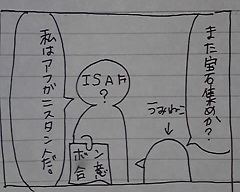 また宝石集めか？
うみねこ
↓
ISAF
？
ボン
合意
私はアフガニスタンだ。